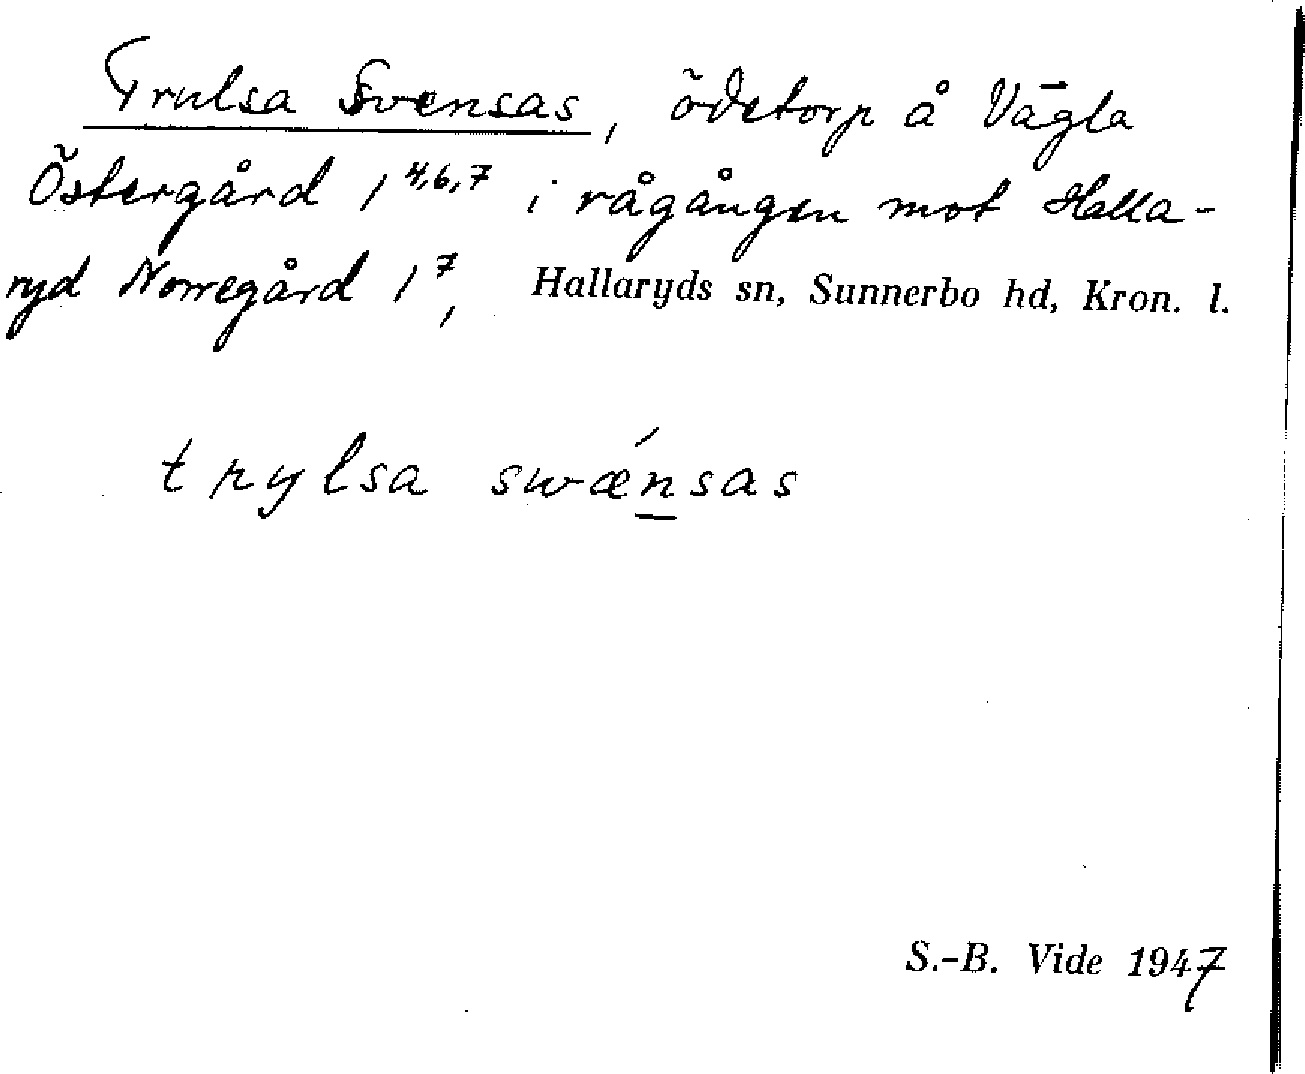 Trulsa Svensas, ödetorp å Vägla
Östergård 1 4,6,7 i rågången mot Halla-
ryd Norregård 1 7, Hallaryds sn, Sunnerbo hd, Kron. l.
trylsa swǽnsas
S.-B. Vide 1947